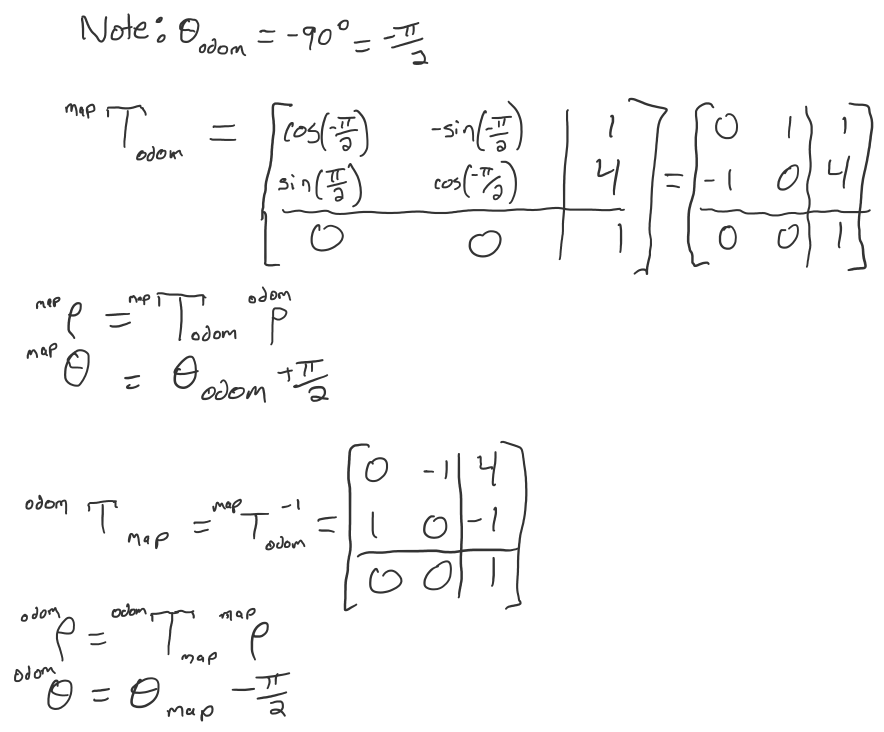 Note: θ_odom = -90° = -π/2
^map T_odom = [cos(-π/2) -sin(-π/2) | 1] = [0 1 | 1]
[sin(π/2) cos(-π/2) | 4] [-1 0 | 4]
[0 0 | 1] [0 0 | 1]
^map ρ = ^map T_odom ^odom ρ
^map θ = θ_odom + π/2
[0 -1 | 4]
^odom T_map = ^map T_odom^-1 = [1 0 | -1]
[0 0 | 1]
^odom ρ = ^odom T_map ^map ρ
^odom θ = θ_map - π/2